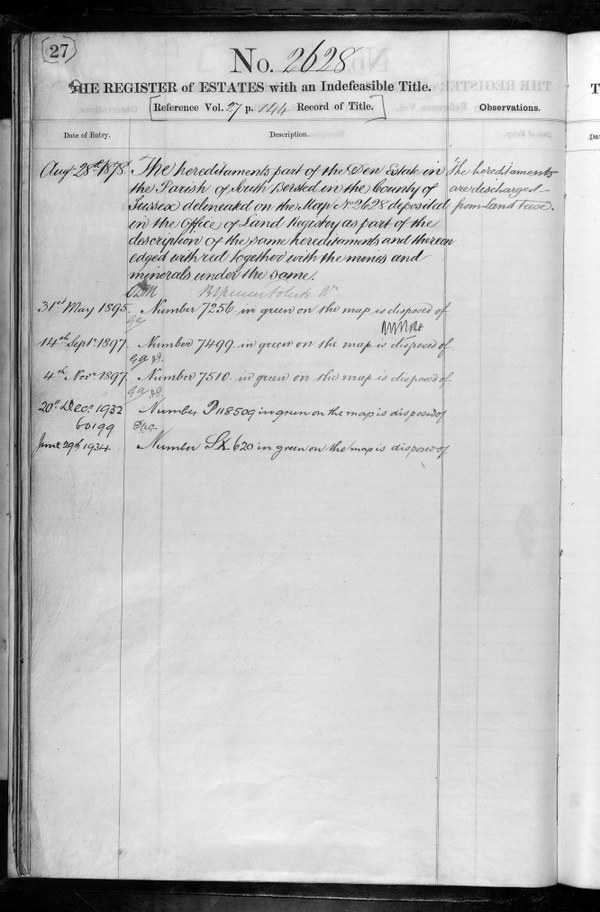 27
No. 2628
THE REGISTER of ESTATES with an Indefeasible Title.
[Reference Vol. 27 p. 144 Record of Title.]
Observations.
Date of Entry.
Description.
Augt 28th 1878.
The hereditaments part of the Den Estate in
the Parish of South Bersted in the County of
Sussex delineated on the Map No 2628 deposited
in the Office of Land Registry as part of the
description of the same hereditaments and thereon
edged with red together with the mines and
minerals under the same.
The hereditaments
are discharged
from land taxed.
31st May 1895.
Number 7256 in green on the map is disposed of
14th Septr. 1897.
Number 7499. in green on the map is disposed of
4th Novr. 1897.
Number 7510. in green on the map is disposed of
20th Decr. 1932
Number P118509 in green on the map is disposed of
60199
June 29th 1934
Number Sx. 620 in green on the map is disposed of